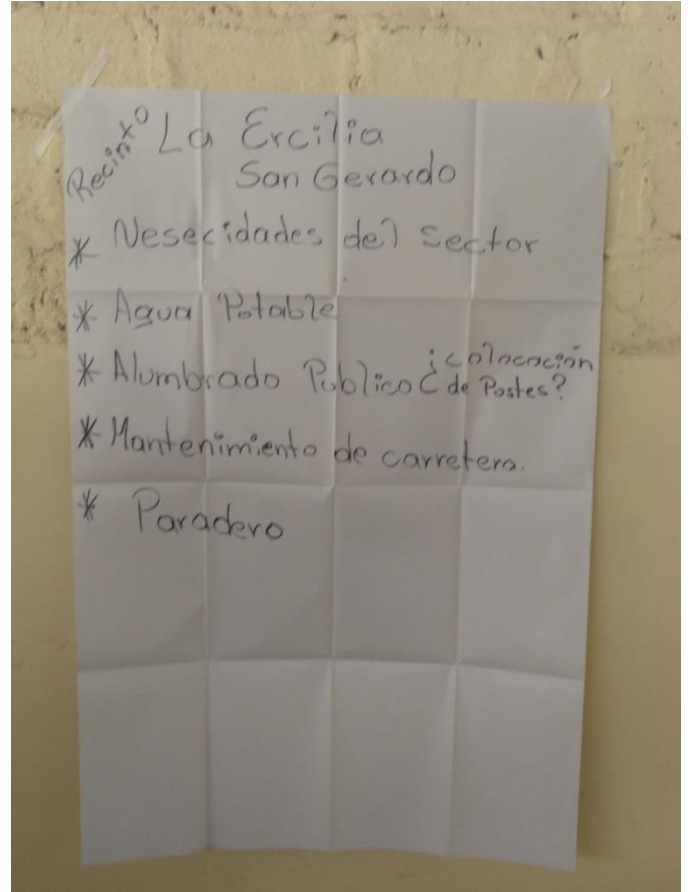 Recinto La Ercilia
San Gerardo
* Nesecidades del Sector
* Agua Potable
* Alumbrado Publico ¿colocación
de Postes?
* Mantenimiento de carretera.
* Paradero